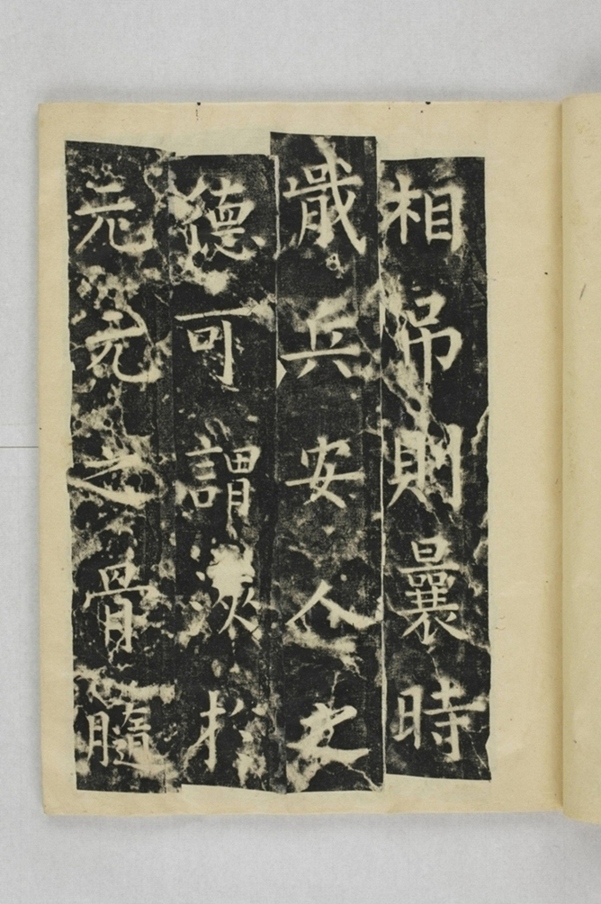 相吊則曩時
戢兵安人之
德可謂浹扵
元元之骨髓